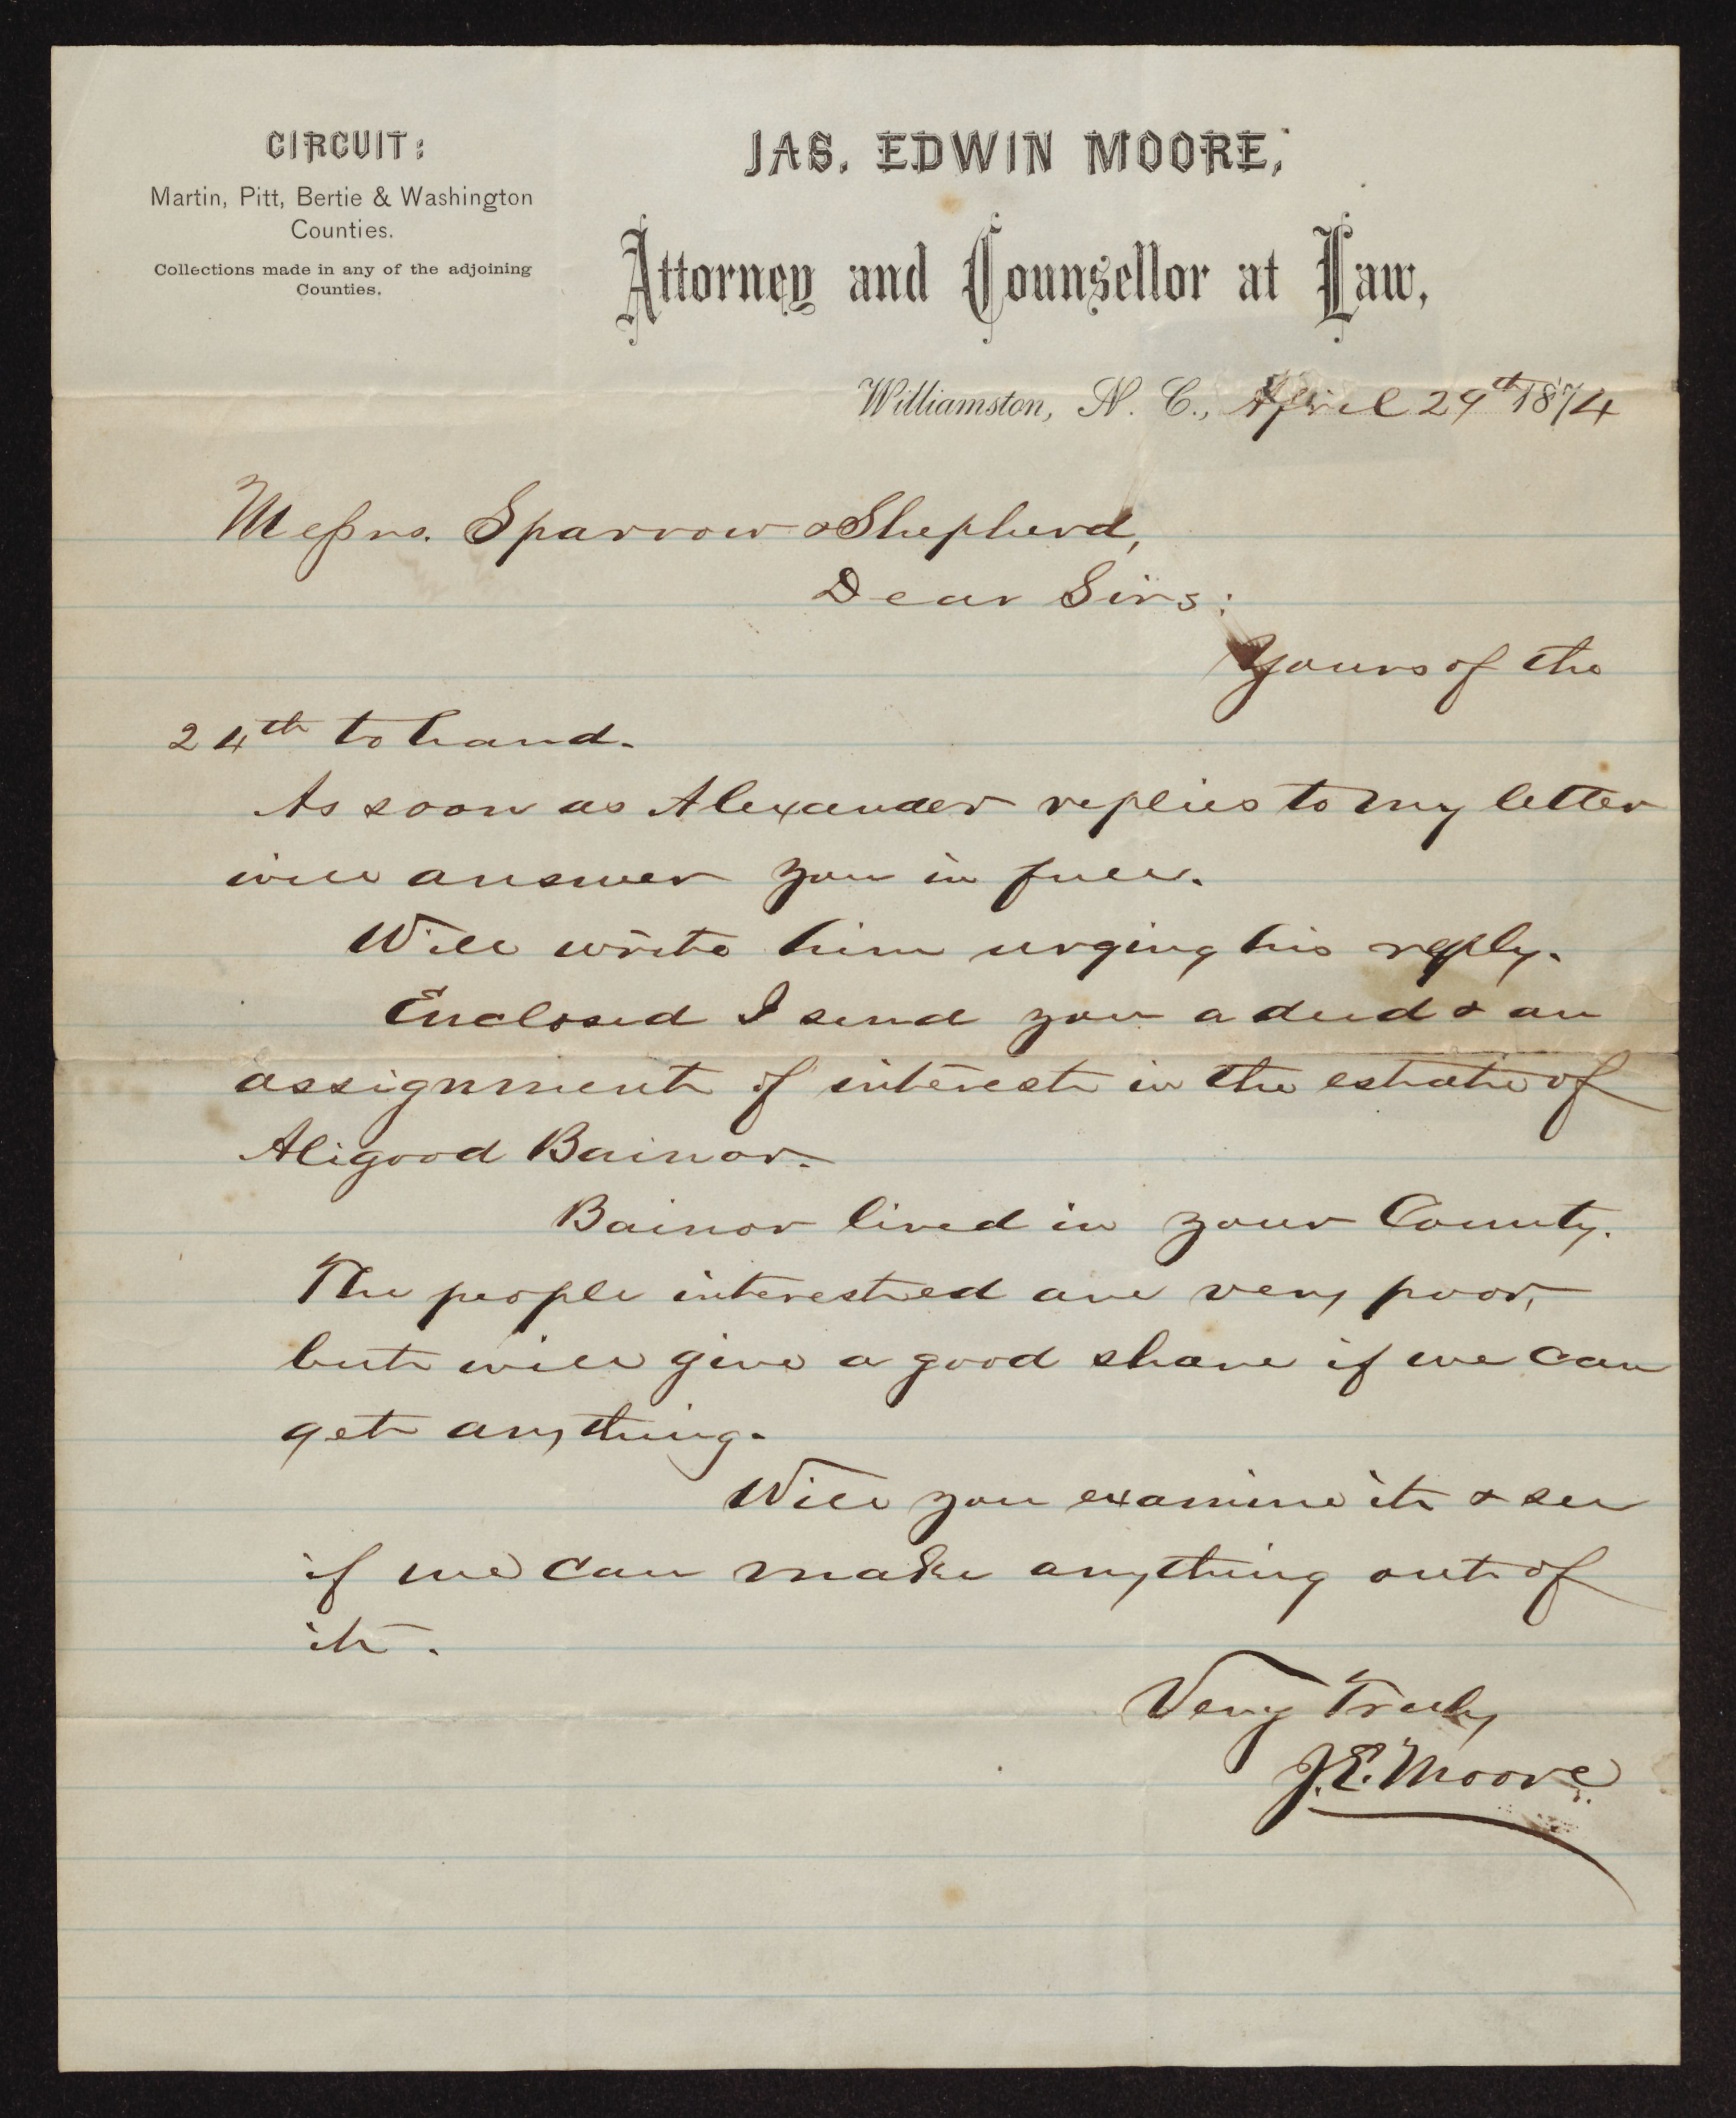 CIRCUIT:
Martin, Pitt, Bertie & Washington
Counties.
Collections made in any of the adjoining
Counties.
JAS. EDWIN MOORE,
Attorney and Counsellor at Law,
Williamston, N. C., April 29th 1874
Messrs. Sparrow & Shepherd,
Dear Sirs:
Yours of the
24th to hand.
As soon as Alexander replies to my letter
will answer you in full.
Will write him urging his reply.
Enclosed I send you a deed & an
assignment of interest in the estate of
Aligood Bainor.
Bainor lived in your County.
The people interested are very poor,
but will give a good share if we can
get anything.
Will you examine it & see
if we can make anything out of
it.
Very Truly
J.E. Moore